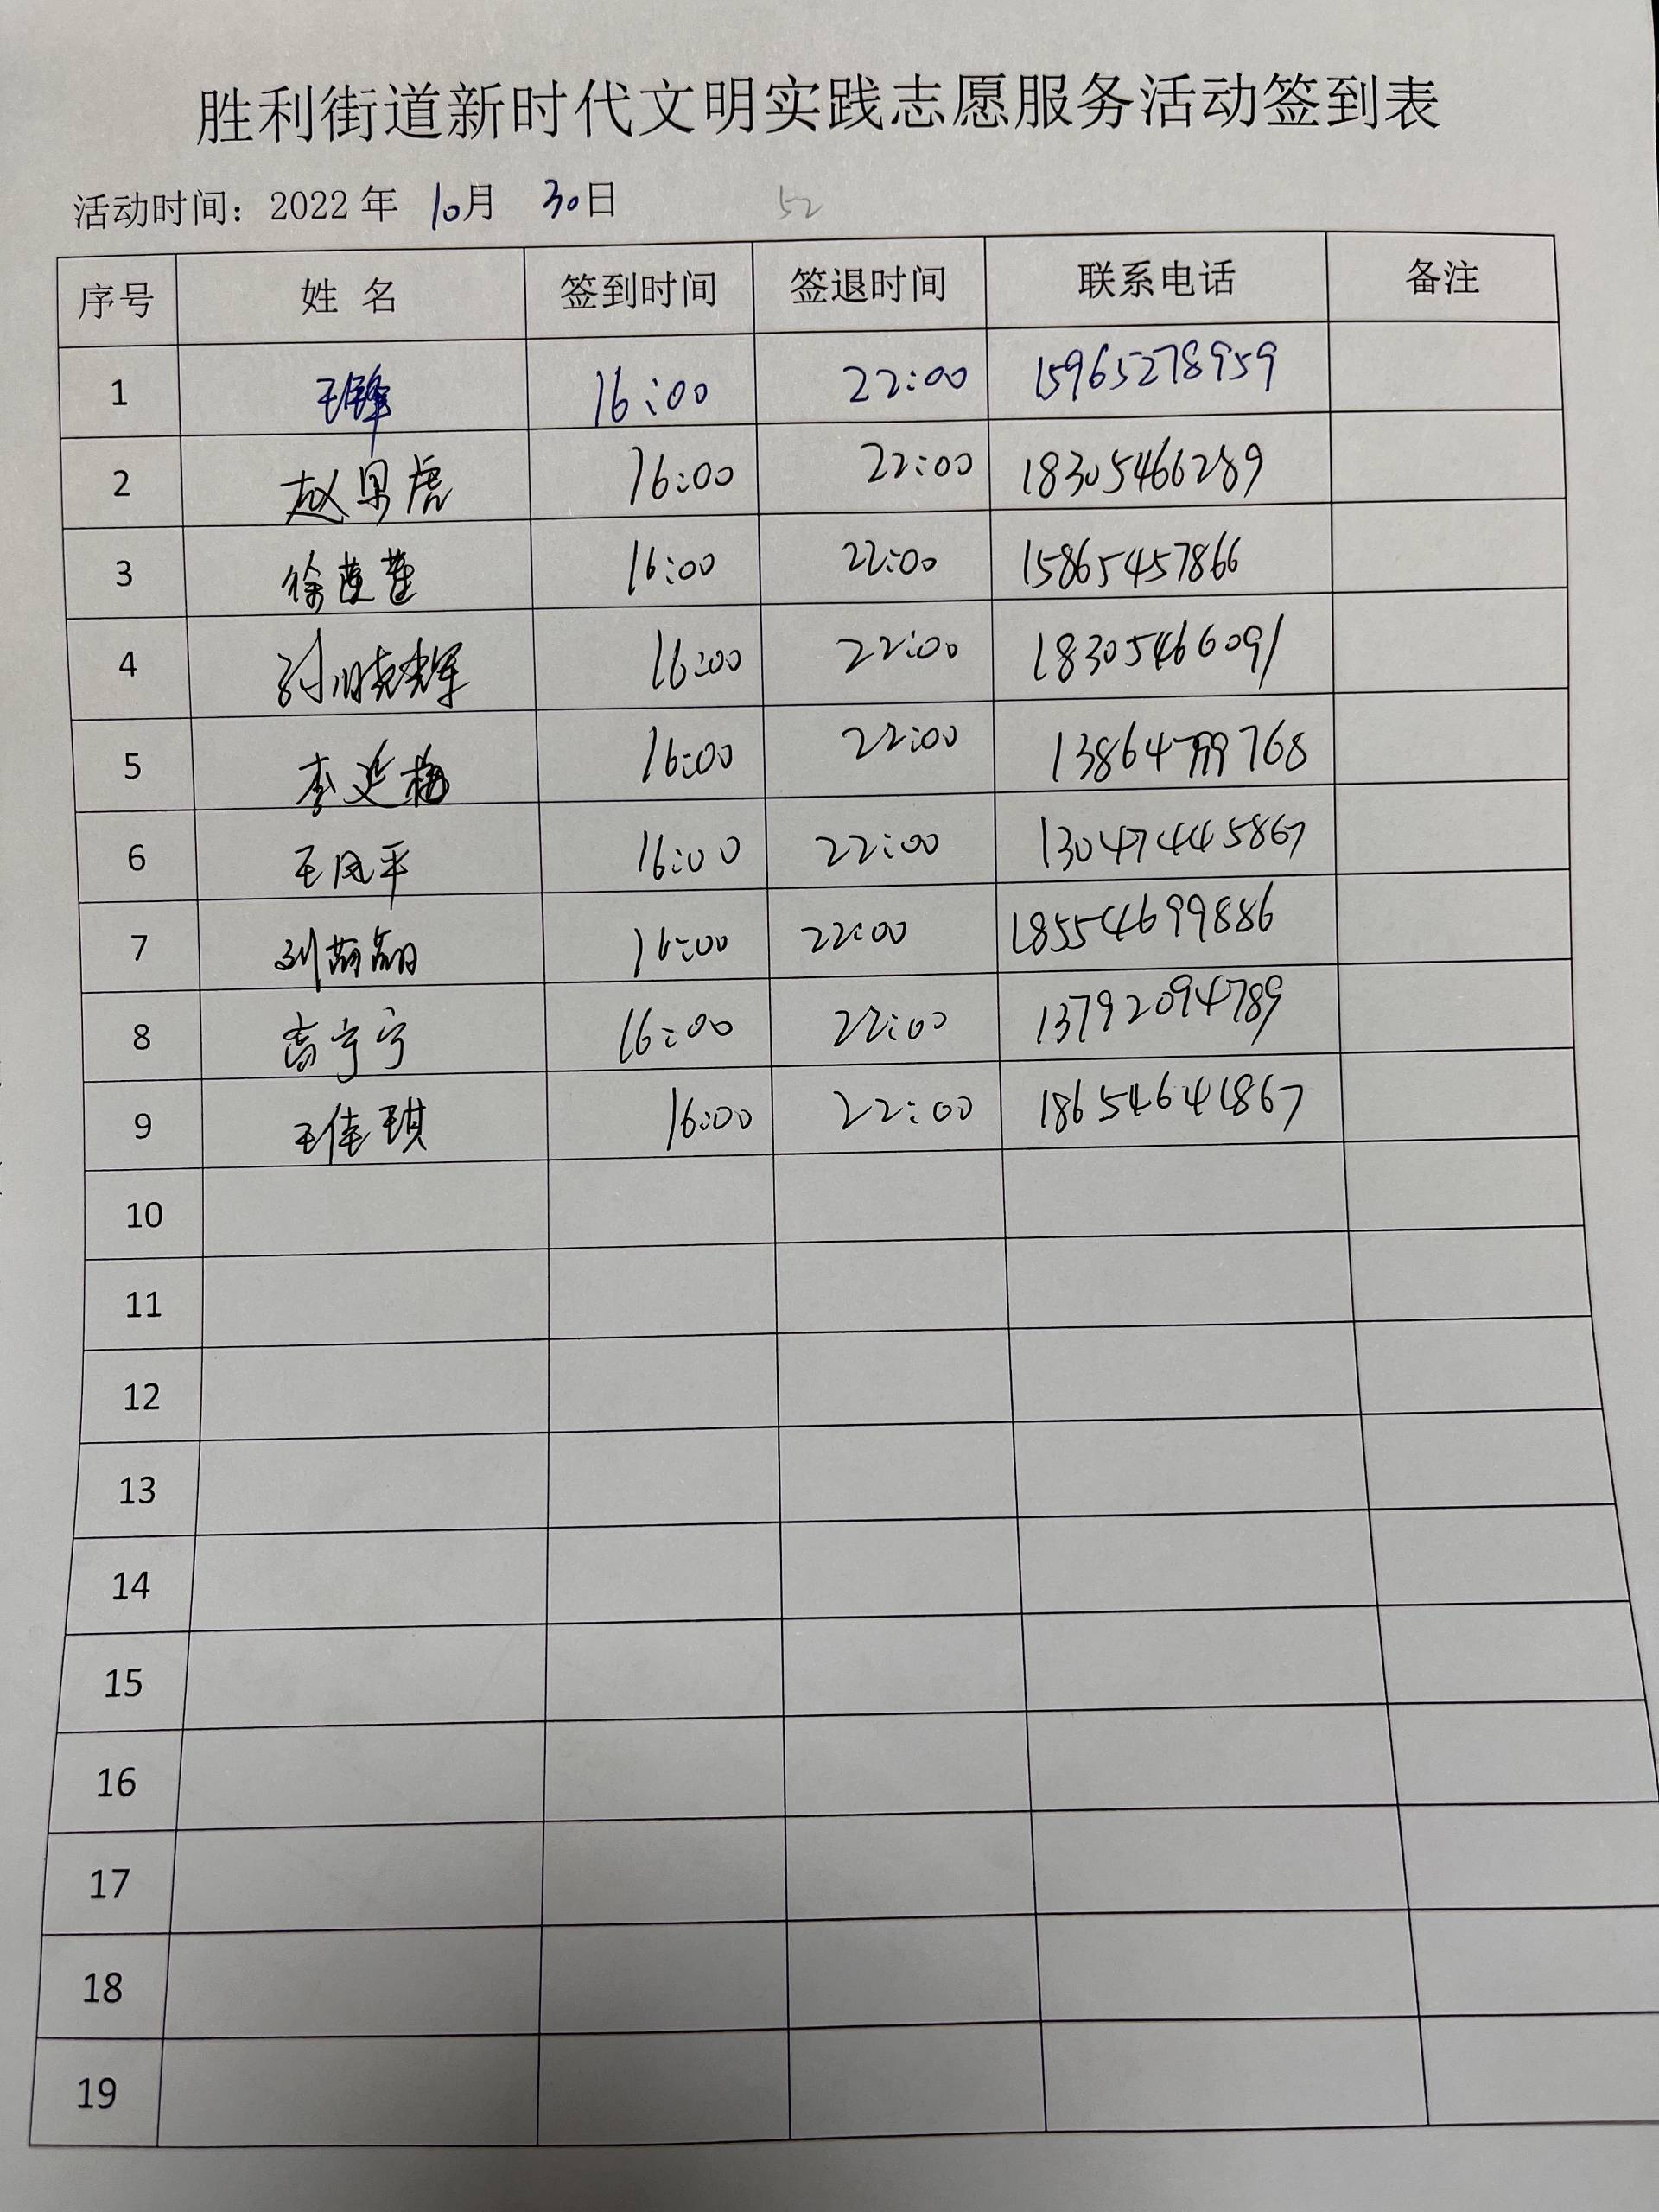 胜利街道新时代文明实践志愿服务活动签到表
活动时间：2022 年 10月 30日 52
序号 姓 名 签到时间 签退时间 联系电话 备注
1 王锋 16:00 22:00 15965278959
2 赵果虎 16:00 22:00 18305466289
3 徐莲莲 16:00 22:00 15865457866
4 孙晓辉 16:00 22:00 18305466091
5 李延梅 16:00 22:00 13864799768
6 王凤平 16:00 22:00 13047445867
7 刘萌萌 16:00 22:00 18554699886
8 高宁宁 16:00 22:00 13792094789
9 王佳琪 16:00 22:00 18654641867
10
11
12
13
14
15
16
17
18
19